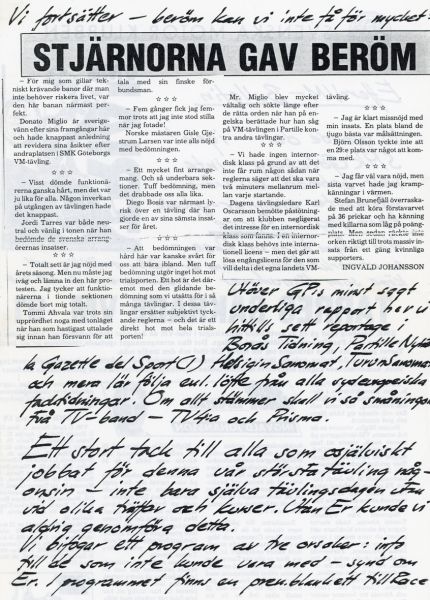 Vi fortsätter – beröm kan vi inte få för mycket!
STJÄRNORNA GAV BERÖM
– För mig som gillar tek-
niskt krävande banor där man
inte behöver riskera livet, var
den här banan närmast per-
fekt.
Donato Miglio är sverige-
vänn efter sina framgångar här
och hade knappast anledning
att revidera sin åsikter efter
andraplatsen i SMK Göteborgs
VM-tävling.
☆☆☆
– Visst dömde funktionä-
rerna ganska hårt, men det var
ju lika för alla. Någon inverkan
på utgången av tävlingen hade
det knappast.
Jordi Tarres var både neu-
tral och vänlig i tonen när han
bedömde de svenska arrang-
örernas insatser.
☆☆☆
– Totalt sett är jag nöjd med
årets säsong. Men nu måste jag
iväg och lämna in den här pro-
testen. Jag tycker att funktio-
närerna i tionde sektionen
dömde bort mig totalt.
Tommi Ahvala var trots sin
upprördhet noga med tonläget
när han som hastigast uttalade
sig innan han försvann för att
tala med sin finske för-
bundsman.
☆☆☆
– Fem gånger fick jag fem-
mor trots att jag inte stod stilla
när jag fotade!
Norske mästaren Gisle Gjest-
rum Larsen var inte alls nöjd
med bedömningen.
☆☆☆
– Ett mycket fint arrange-
mang. Och så underbara sek-
tioner. Tuff bedömning, men
det drabbade oss alla lika.
Diego Bosis var närmast ly-
risk över en tävling där han
gjorde en av sina sämsta insat-
ser för året.
☆☆☆
– Att bedömningen var
hård här var kanske svårt för
oss att bära ibland. Men tuff
bedömning utgör inget hot mot
trialsporten. Ett hot är det där-
emot med den glidande be-
dömning som vi utsätts för i så
många tävlingar. I dessa täv-
lingar ersätter subjektivt tyck-
ande reglerna – och det är ett
direkt hot mot hela trials-
porten!
Mr. Miglio blev mycket
vältalig och sökte länge efter
de rätta orden när han på en-
gelska berättade hur han såg
på VM-tävlingen i Partille kont-
ra andra tävlingar.
☆☆☆
– Vi hade ingen internor-
disk klass på grund av att det
inte får rum någon sådan när
reglerna säger att det ska vara
två minuters mellanrum mel-
lan varje startande.
Dagens tävlingsledare Karl
Oscarsson bemötte påstötning-
ar om att klubben negligerat
det intresse för en internordisk
klass som fanns. I en internor-
disk klass behövs inte interna-
tionell licens – men det går att
lösa engångslicens för den som
vill delta i det egna landets VM-
tävling.
☆☆☆
– Jag är klart missnöjd med
min insats. En plats bland de
tjugo bästa var målsättningen.
Björn Olsson tyckte inte att
en 29:e plats var något att kom-
ma med.
☆☆☆
– Jag får väl vara nöjd, men
sista varvet hade jag kramp-
känningar i värmen.
Stefan Brunefjäll överraska-
de med att köra förstavarvet
på 36 prickar och ha känning
med killarna som låg på poäng-
plats. Men sedan räckte inte
orken riktigt till trots massiv in-
sats från ett gäng kvinnliga
supporters.
INGVALD JOHANSSON
Utöver GP:s minst sagt
underliga rapport har vi
hittills sett reportage i
Borås Tidning, Partille Nytt,
la Gazette del Sport(!) Helsigin Sanomat, Turun Sanomat
och mera lär följa enl. löfte från alla sydeuropeiska
facktidningar. Om allt stämmer skall vi så småningom
få två TV-band – TV4:a och Prisma.
Ett stort tack till alla som osjälviskt
jobbat för denna vår största tävling någ-
onsin – inte bara själva tävlingsdagen utan
vid olika träffar och kurser. Utan Er kunde vi
aldrig genomföra detta.
Vi bifogar ett program av tre orsaker: info
till de som inte kunde vara med – synd om
Er. I programmet finns en pren.blankett till Race